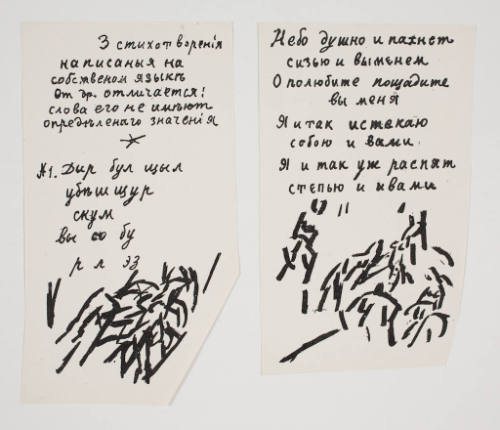 3 стихотворенія
написаныя на
собственом языкѣ
от др. отличается:
слова его не имѣют
опредѣленаго значенія
*
№1. Дыр бул щыл
убѣшщур
скум
вы со бу
р л эз
Небо душно и пахнет
сизью и выменем
О полюбите пощадите
вы меня
Я и так истекаю
собою и вами
Я и так уж распят
степью и ивами